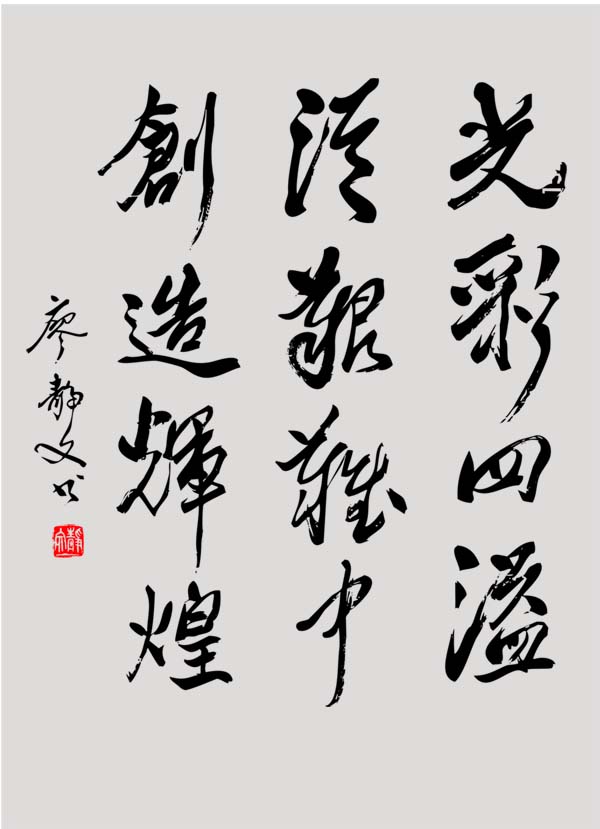 光彩四溢
從艱難中
創造輝煌
廖靜文书